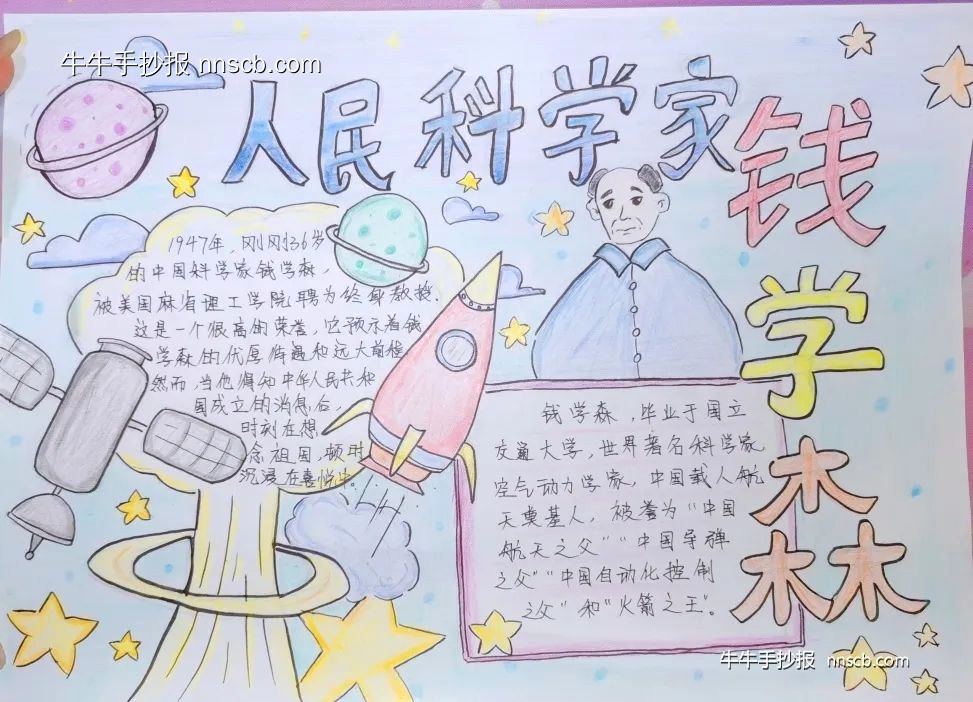 牛牛手抄报 nnscb.com
人民科学家
钱学森
1947年,刚刚36岁
的中国科学家钱学森,
被美国麻省理工学院聘为终身教授.
这是一个很高的荣誉,它预示着钱
学森的优厚待遇和远大前程
然而,当他得知中华人民共和
国成立的消息后,
时刻在想
念祖国,顿时
沉浸在喜悦中。
钱学森,毕业于国立
交通大学,世界著名科学家
空气动力学家,中国载人航
天奠基人,被誉为“中国
航天之父”“中国导弹
之父”“中国自动化控制
之父”和“火箭之王”。
牛牛手抄报 nnscb.com